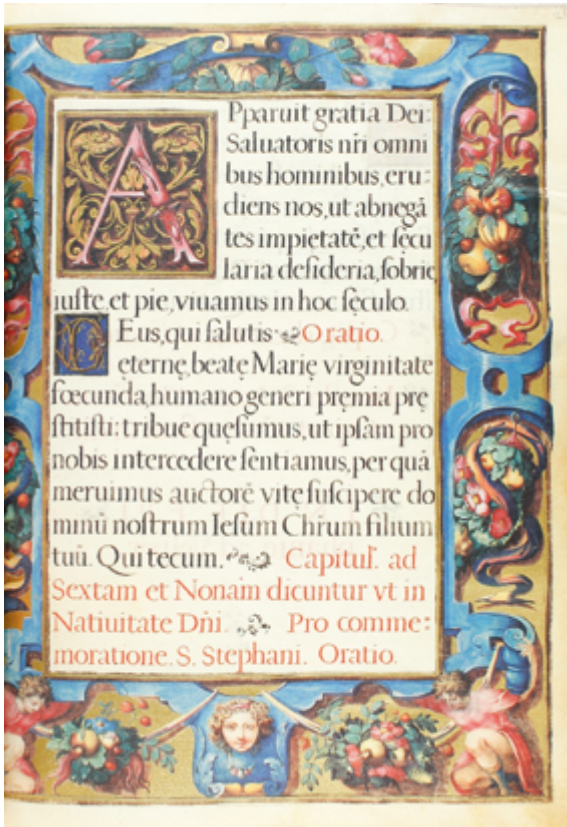 Apparuit gratia Dei:
Saluatoris nr̄i omni
bus hominibus, eru:
diens nos, ut abnegā
tes impietatē, et sęcu
laria desideria, sobrie,
iuste, et pie, viuamus in hoc sęculo.
Deus, qui salutis Oratio.
eternę, beatę Marię virginitate
fœcunda, humano generi pręmia prę
stitisti: tribue quęsumus, ut ipsam pro
nobis intercedere sentiamus, per quā
meruimus auctorē vitę suscipere do
minū nostrum Iesum Chrum filium
tuū. Qui tecum. Capitul. ad
Sextam et Nonam dicuntur vt in
Natiuitate Dn̄i. Pro comme:
moratione. S. Stephani. Oratio.